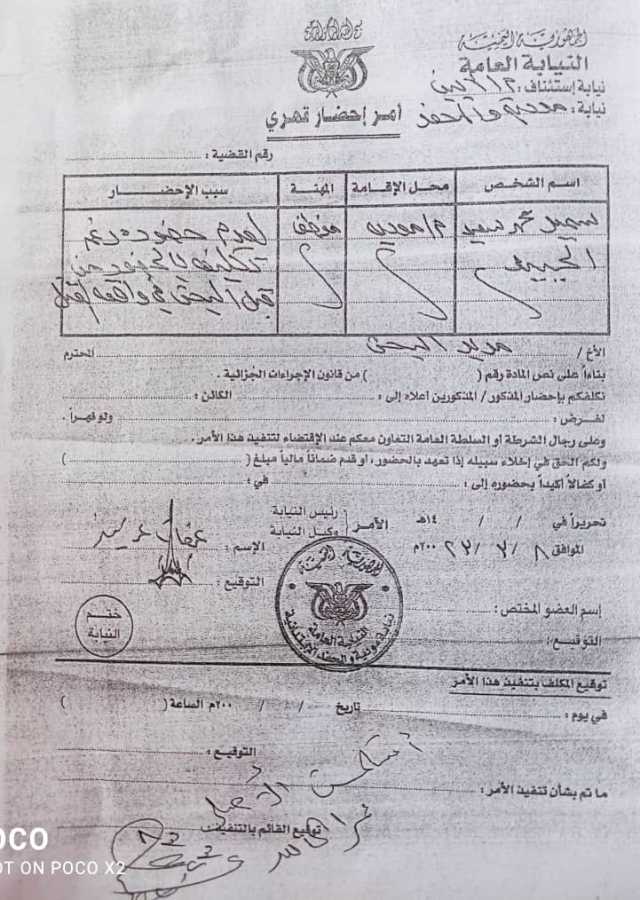 الجمهورية اليمنية
النيابة العامة
نيابة إستئناف : م / أبين
نيابة : مودية والمحفد
أمر إحضار قهري
رقم القضية :
اسم الشخص محل الإقامة المهنة سبب الإحضار
سمير محمد سعيد م/مودية موظف لعدم حضوره رغم
تكليفه بالحضور من
قبل البحث في واقعة قتل
الأخ / مدير البحث المحترم
بناءاً على نص المادة رقم ( ) من قانون الإجراءات الجزائية .
نكلفكم بإحضار المذكور / المذكورين أعلاه إلى : الكائن :
لغرض : ولو قهراً .
وعلى رجال الشرطة أو السلطة العامة التعاون معكم عند الإقتضاء لتنفيذ هذا الأمر .
ولكم الحق في إخلاء سبيله إذا تعهد بالحضور ، أو قدم ضماناً مالياً مبلغ ( )
أو كفالاً أكيداً بحضوره إلى : في :
تحريراً في / / ١٤هـ الآمر رئيس النيابة
وكيل النيابة
الموافق ٨ / / ٢٠٠م الإسم :
التوقيع :
إسم العضو المختص :
التوقيع :
ختم
النيابة
الجمهورية اليمنية
النيابة العامة
نيابة مودية والمحفد الإبتدائية
توقيع المكلف بتنفيذ هذا الأمر
في يوم : تاريخ / / ٢٠٠م الساعة ( )
التوقيع :
ما تم بشأن تنفيذ الأمر :
توقيع القائم بالتنفيذ
POCO
SHOT ON POCO X2